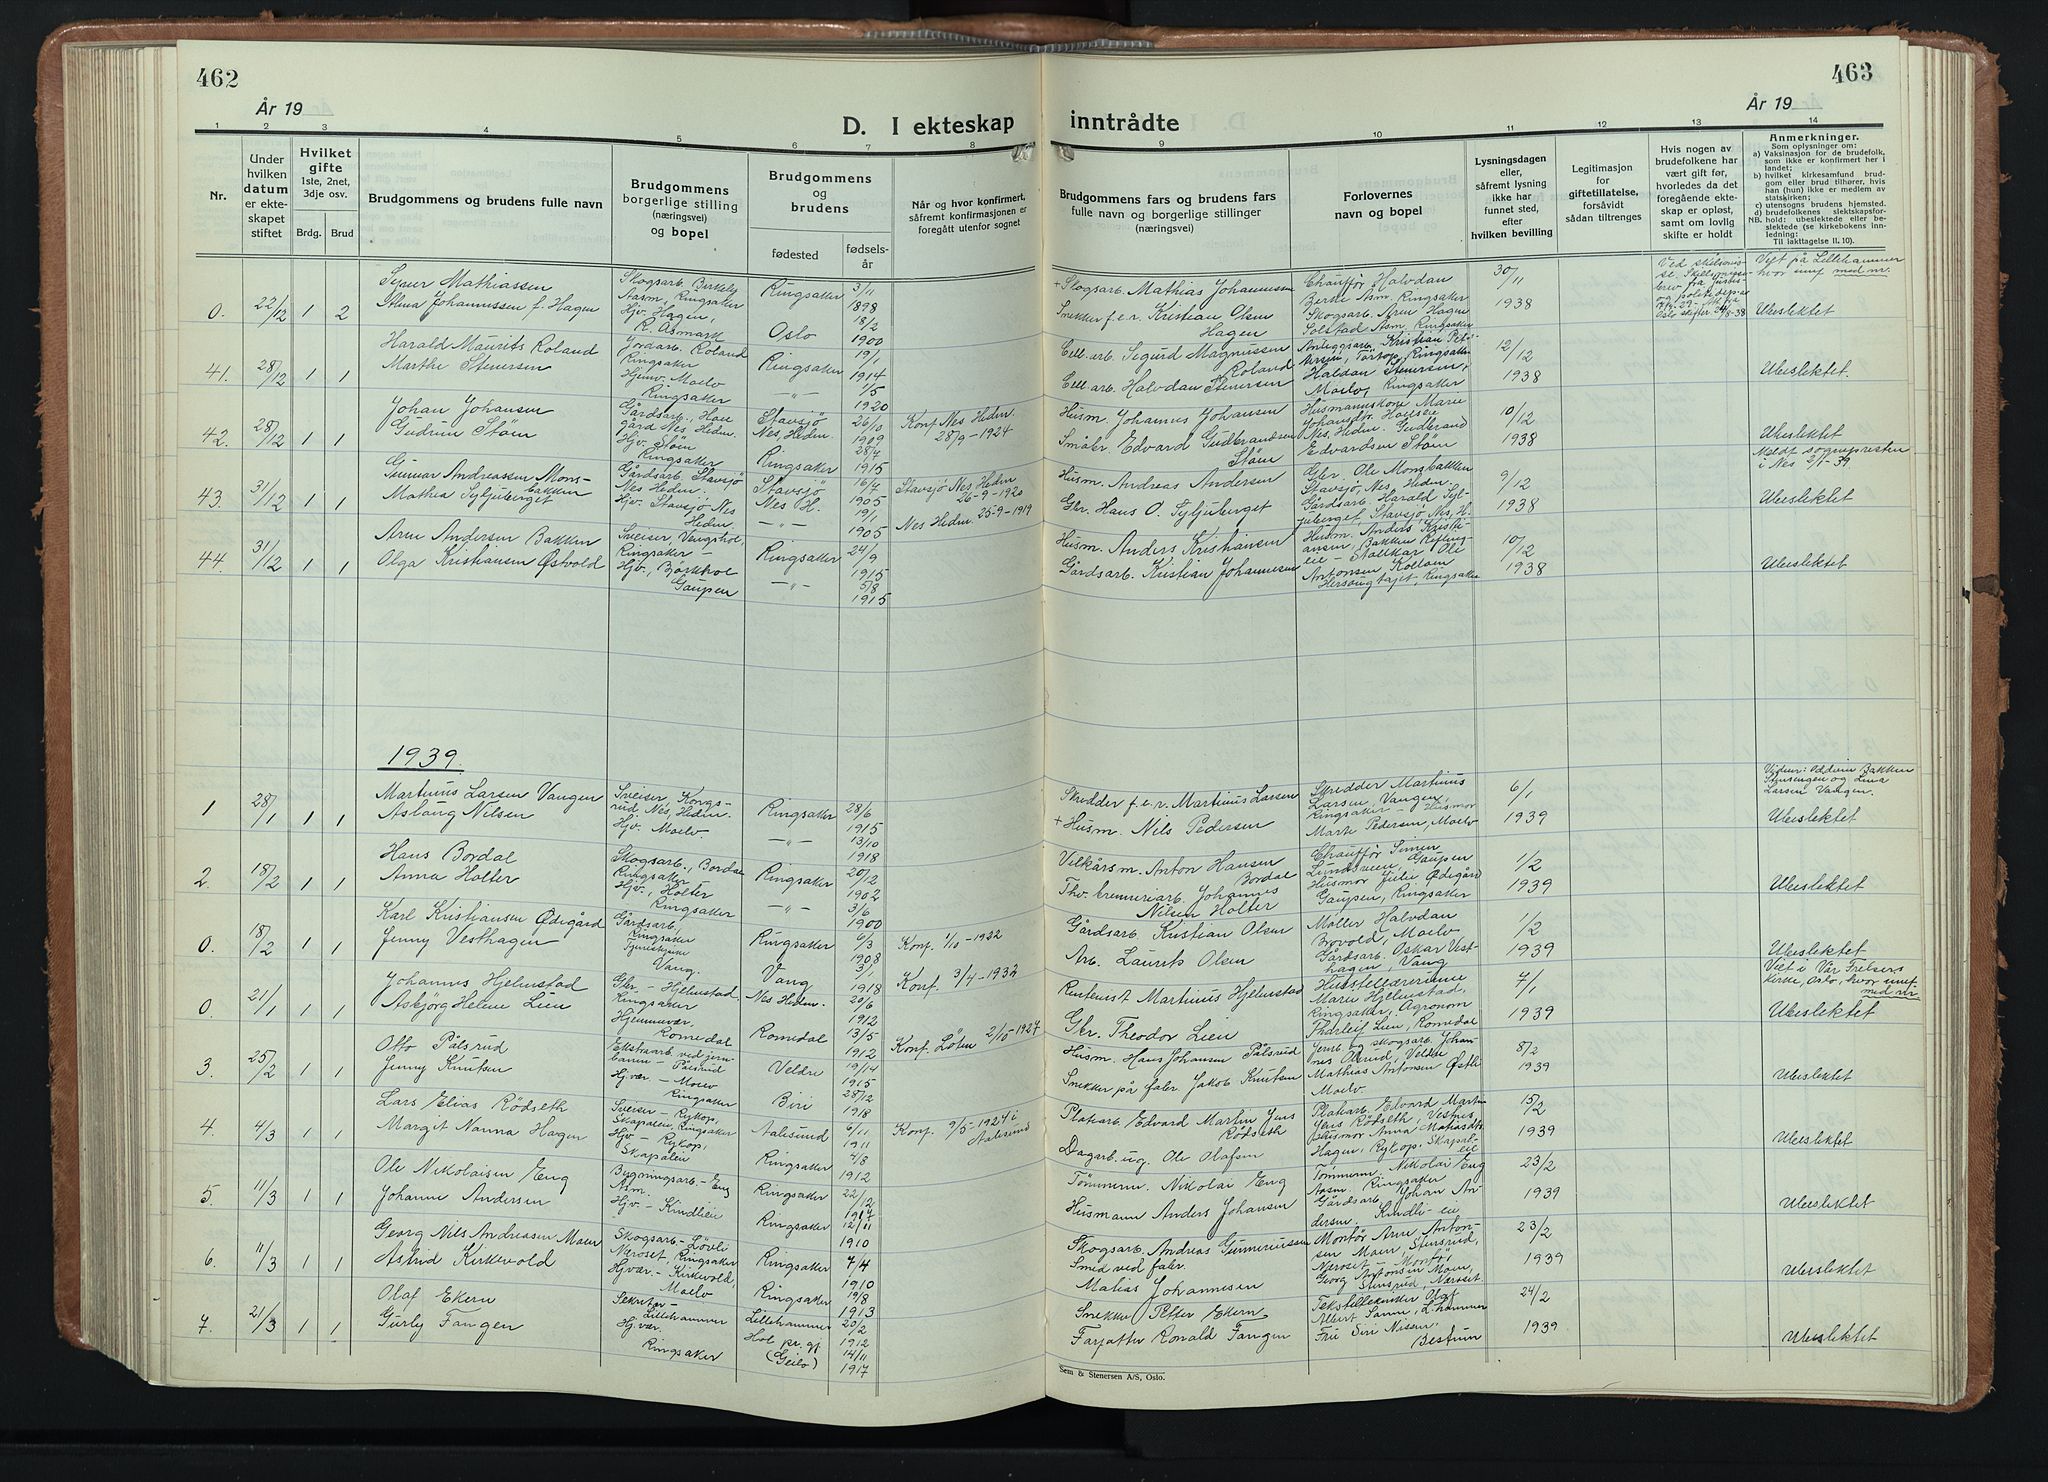 462
År 19
D. I ekteskap
1 2 3 4 5 6 7 8
Nr.
Under hvilken datum er ekteskapet stiftet
Hvilket gifte
1ste, 2net, 3dje osv.
Brdg. Brud
Brudgommens og brudens fulle navn
Brudgommens borgerlige stilling
(næringsvei)
og bopel
Brudgommens og brudens
fødested
fødsels-
år
Når og hvor konfirmert,
såfremt konfirmasjonen er
foregått utenfor sognet
0. 22/12 1 2
Mathiassen
Johannessen f. Hagen
Skogsarb. Birkely
Aasm., Ringsaker
Hjv. Hagen,
R. Åsmark
Ringsaker 3/11 1898
Oslo 18/2 1900
41. 28/12 1 1
Harald Maurits Roland
Marthe Stenersen
Jordarb. Roland
Ringsaker
Hjemv. Moelv
Ringsaker
Ringsaker 19/1 1914
–"– 1/5 1920
42. 28/12 1 1
Johan Johansen
Gudrun Støen
Gårdsarb.
gård Nes, Hedm.
Hjv. Støen
Ringsaker
Stavsjø
Nes, Hedm. 26/10 1909
Ringsaker 28/7 1915
Konf. Nes Hedm.
28/9–1924
43. 31/12 1 1
Gunnar Andreassen Mons-
bakken
Mathea Syljuberget
Gårdsarb. Stavsjø
Nes Hedm.
Hjv. Stavsjø Nes
Hedm.
Stavsjø
Nes H. 1905
–"– 19/1 1905
Stavsjø Nes Hedm
26-9-1920
Nes Hedm. 25-9-1919
44. 31/12 1 1
Arne Andersen Bakken
Olga Kristiansen Østvold
Sveiser,
Ringsaker –
Hjv., Bjørkhol
Gaupen
Ringsaker 24/9 1915
–"– 5/8 1915
1939.
1 28/1 1 1
Martinus Larsen Vangen
Aslaug Nilsen
Sveiser Kongs-
rud Nes, Hedm.
Hjv. Moelv
Ringsaker 28/6 1915
–"– 13/10 1918
2. 18/2 1 1
Hans Bordal
Anna Holter
Skogsarb., Bordal
Ringsaker
Hjv., Holter
Ringsaker
Ringsaker 20/12 1902
–"– 3/6 1900
0. 18/2 1 1
Karl Kristiansen Ødegård
Jenny Vesthagen
Gårdsarb.,
Ringsaker
Vang.
Ringsaker 6/3 1908
Vang 3/1 1918
Konf. 1/10–1922
Konf. 3/4–1932
0. 21/1 1 1
Johannes Hjelmstad
Asbjørg Helene Lien
Gbr. – Hjelmstad
Ringsaker
Hjemmevær.
Romedal
Nes Hedm. 20/6 1912
Romedal 13/5 1912
Konf. Løten 2/10–1927
3. 25/2 1 1
Otto Pålsrud
Jenny Knutsen
Ekstraarb. ved jern-
bane – Pålsrud
Hjvær – Moelv
Ringsaker
Veldre 1915
Biri 28/12 1918
4. 4/3 1 1
Lars Elias Rødseth
Margit Nanna Hagen
Sveiser – Rykop,
Skapalen, Ringsaker
Hjv. – Rykop,
Skapalen
Aalesund 6/11 1911
Ringsaker 4/8 1912
Konf. 9/5–1927 i
Aalesund
5. 11/3 1 1
Ole Nikolaisen Eng
Johanne Andersen
Bygningsarb. – Eng
Asm.
Hjv. – Kindlien
Ringsaker 22/12
Ringsaker 12/11 1910
6. 11/3 1 1
Georg Nils Andreasen Moen
Astrid Kirkevold
Skogsarb. – Løvli
Næroset, Ringsaker
Hjvær. – Kirkevold,
Moelv
Ringsaker 7/4 1910
Ringsaker 19/8 1913
7. 21/3 1 1
Olaf Ekern
Gurly Fangen
Sekretær –
Lillehammer
Hjvær.
Ringsaker
Lillehammer 20/2 1912
Hol pr.gj.
(Geilo) 14/11 1917
463
År 19
inntrådte
9 10 11 12 13 14
Brudgommens fars og brudens fars
fulle navn og borgerlige stillinger
(næringsvei)
Forlovernes
navn og bopel
Lysningsdagen
eller,
såfremt lysning
ikke har
funnet sted,
efter
hvilken bevilling
Legitimasjon
for
giftetillatelse,
forsåvidt
sådan tiltrenges
Hvis nogen av
brudefolkene har
vært gift før,
hvorledes da det
foregående ekte-
skap er opløst,
samt om lovlig
skifte er holdt
Anmerkninger.
Som oplysninger om:
a) Vaksinasjon for de brudefolk,
som ikke er konfirmert her i
landet;
b) hvilket kirkesamfund brud-
gom eller brud tilhører, hvis
han (hun) ikke er medlem av
statskirken;
c) utensogns brudens hjemsted.
d) brudefolkenes slektskapsfor-
hold: ubeslektede eller be-
slektede (se kirkebokens inn-
ledning:
NB. Til iakttagelse II. 10).
+ Skogsarb. Mathias Johannessen
Snekker f.e.r. Kristian Olsen
Hagen
Chauffør Halvdan
Berke Asm. Ringsaker
Skogsarb. Arne Hagen
Solstad Asm, Ringsaker
30/11
1938
Viet på Lillehammer
hvor innf. med nr.
Ubeslektet
Cell.arb. Sigurd Magnussen
Roland
Cell.arb. Halvdan Stenersen
Anleggsarb. Kristian Pet-
Ringsaker
Haldan Stenersen,
Moelv, Ringsaker
12/12
1938
Ubeslektet.
Husm. Johannes Johansen
Småbr. Edvard Gudbrandsen
Støen
Husmannskone Marie
Johansen
Nes, Hedm. Gudbrand
Edvardsen Støen
10/12
1938
Ubeslektet
Meldt sognepresten
i Nes 2/1-39.
Husm. Andreas Andersen
Gbr. Hans O. Syljuberget
Gbr. Ole Monsbakken
Stavsjø, Nes, Hedm.
Gårdsarb. Harald Syl-
juberget, Stavsjø, Nes, H.
9/12
1938
Ubeslektet
Husm. Anders Kristiansen
Gårdsarb. Kristian Johannesen
Husm. Anders Kristi-
ansen, Bakken
eie – Stallkar Ole
Antonsen Kollsen
Ringsaker
10/12
1938
Ubeslektet
Skredder f.e.r. Martinus Larsen
+ Husm. Nils Pedersen
Skredder Martinus
Larsen, Vangen,
Ringsaker – Husmor
Marte Pedersen, Moelv
6/1
1939
Vidner: Oddvin Bakken
Stensengen og Lina
Larsen Vangen.
Ubeslektet
Vilkårsm. Anton Hansen
Bordal
Thv. brenneriarb. Johannes
Nilsen Holter
Chauffør Simen
Lundsveen, Gaupen
Husmor Julie Ødegård
Gaupen, Ringsaker
1/2
1939
Ubeslektet
Gårdsarb. Kristian Olsen
Arb. Laurits Olsen
Møller Halvdan
Brovold, Moelv
Gårdsarb. Oskar Vest-
hagen, Vang
1/2
1939
Ubeslektet
Rentenist Martinus Hjelmstad
Gbr. Theodor Lien
Husstellærerinne
Marie Hjelmstad,
Ringsaker, Agronom
Thorleif Lien, Romedal
7/1
1939
Viet i Vår Frelsers
kirke, Oslo, hvor innf.
med nr
Ubeslektet
Husm. Hans Johansen Pålsrud
Snekker på fabr. Jakob Knutsen
Jernb. og skogsarb. Johan-
nes Olsrud, Veldre
Mathias Antonsen Østli
Moelv
8/2
1939
Ubeslektet
Platearb. Edvard Martin Jens
Rødseth
Dagarb. ug. Ole Olafsen
Platearb. Edvard Martin
Jens Rødseth, Vestnes,
Husmor Anna Matiasdtr
Hagen, Rykop, Skapal-
eie
15/2
1939
Ubeslektet
Tømmerm. Nikolai Eng
Husmann Anders Johansen
Tømmerm. Nikolai Eng
Aasm. Ringsaker
Gårdsarb. Johan An-
dersen. Kindli-eie
23/2
1939
Ubeslektet
Skogsarb. Andreas Gunneriussen
Smed ved fabr.
Matias Johannesen
Montør Arne Anton-
sen Moen, Stensrud,
Næroset – Montør,
Georg Antonsen Moen,
Stensrud Næroset
23/2
1939
Ubeslektet
Snekker Petter Ekern
Forfatter Ronald Fangen
Tekstiltekniker Olaf
Albert Sanne, L.hammer
Frk. Siri Nissen,
Bestum
24/2
1939
Ubeslektet
Sem & Stenersen A/S, Oslo.